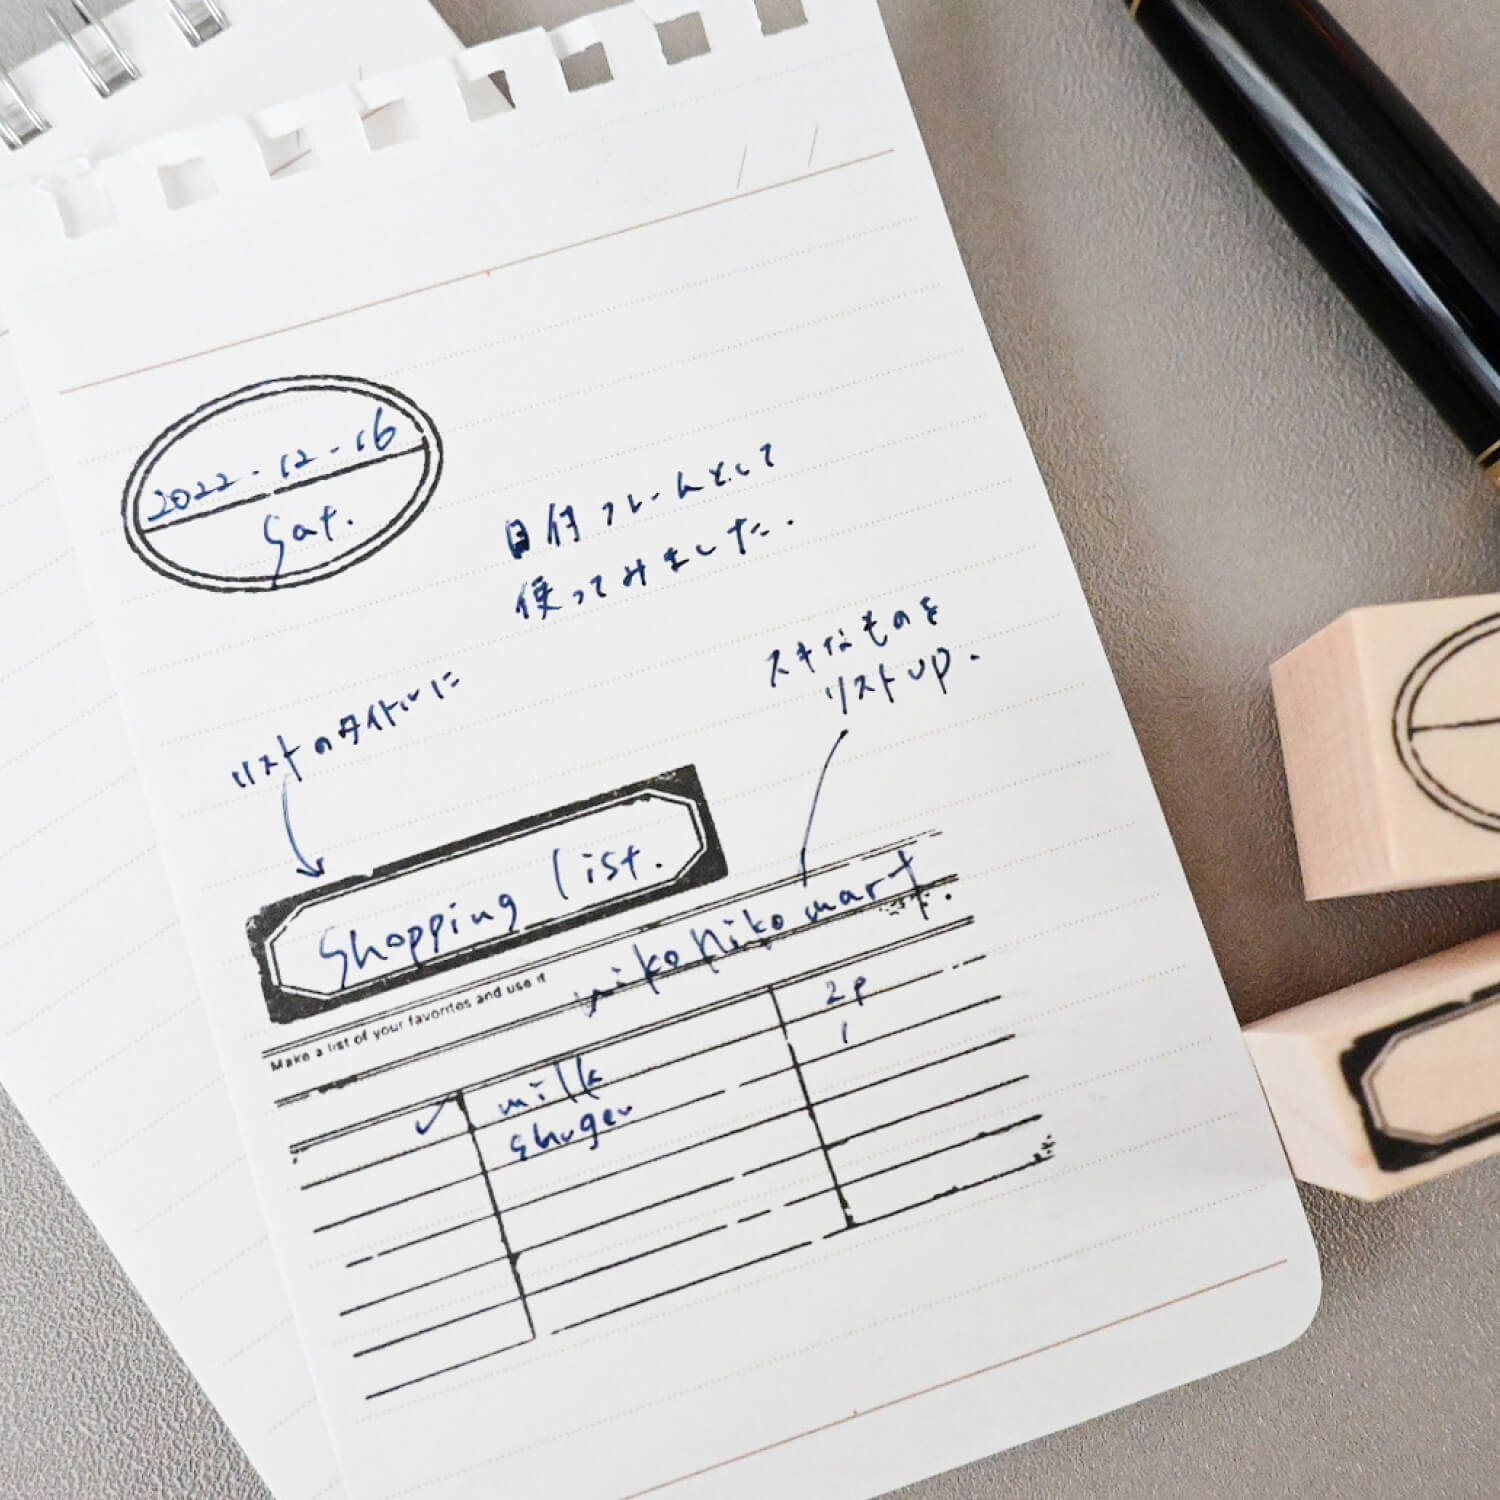 2022.12.16
Sat.
日付フレームとして
使ってみました.
スキなものを
リストUP.
リストのタイトルに
Shopping list.
Make a list of your favorites and use it
niko niko mart.
✓ milk 2p
shuger 1